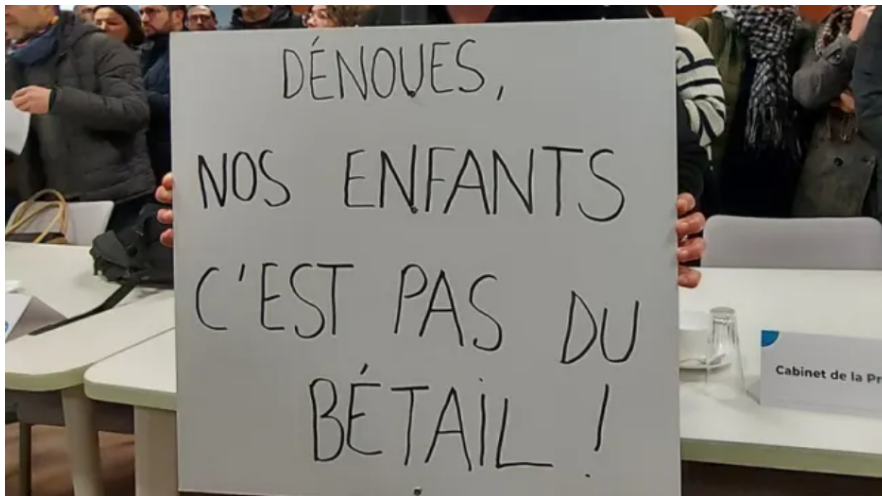 DÉNOUES,
NOS ENFANTS
C'EST PAS DU
BÉTAIL !
Cabinet de la Pr